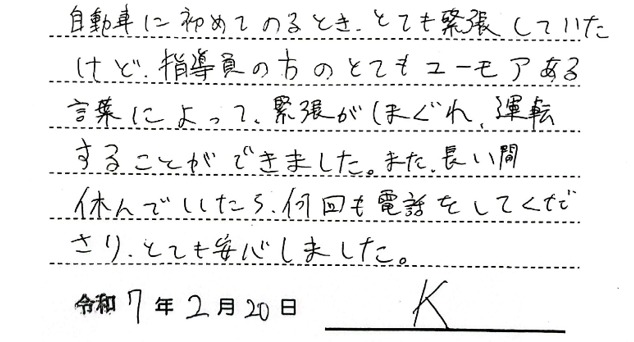 自動車に初めてのるとき、とても緊張していた
けど、指導員の方のとてもユーモアある
言葉によって、緊張がほぐれ、運転
することができました。また、長い間
休んでいたら、何回も電話をしてくだ
さり、とても安心しました。
令和7年2月20日 K